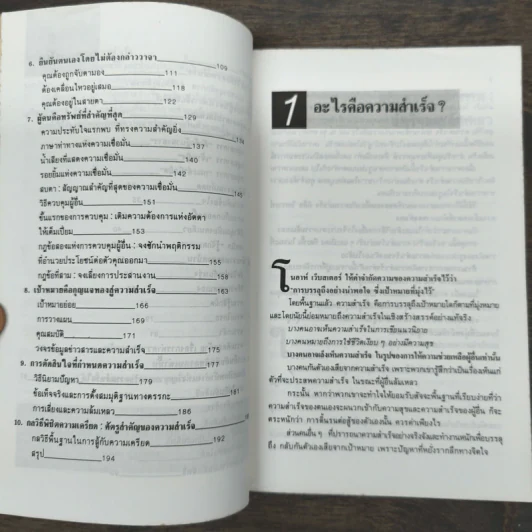 6. ยืนยันตนเองโดยไม่ต้องกล่าววาจา 109
คุณต้องถูกจับตามอง 111
ต้องเคลื่อนไหวอยู่เสมอ 118
คุณต้องอยู่ในสายตา 122
7. ผู้คนคือทรัพย์ที่สำคัญที่สุด 129
ความประทับใจแรกพบ ที่ทรงความสำคัญยิ่ง
ภาษาท่าทางแห่งความเชื่อมั่น 137
น้ำเสียงที่แสดงความเชื่อมั่น 143
รอยยิ้มแห่งความเชื่อมั่น
สบตา : สัญญาณสำคัญที่สุดของความเชื่อมั่น
วิธีควบคุมผู้อื่น 151
ขั้นแรกของการควบคุม : เติมความต้องการแห่งอัตตา
ให้เต็มเปี่ยม 153
กฎข้อสองแห่งการควบคุมผู้อื่น : จงชักนำพฤติกรรม
ที่อำนวยประโยชน์ต่อตัวคุณออกมา 155
กฎข้อที่สาม : จงเลี่ยงการประสานงาน 159
8. เป้าหมายคือกุญแจทองสู่ความสำเร็จ 163
เป้าหมายย่อย 166
การวางแผน 169
คุณสมบัติ 171
วงจรข้อมูลข่าวสารและความสำเร็จ 175
9. การตัดสินใจที่กำหนดความสำเร็จ 177
วิธีนิยามปัญหา 179
ข้อเท็จจริงและการตั้งสมมุติฐานทางตรรกะ 181
การเสี่ยงและความล้มเหลว 186
10. กลวิธีพิชิตความเครียด : ศัตรูสำคัญของความสำเร็จ 187
กลวิธีพื้นฐานในการสู้กับความเครียด 192
สรุป 194
1 อะไรคือความสำเร็จ ?
โนอาห์ เว็บสเตอร์ ให้คำจำกัดความของความสำเร็จไว้ว่า
"การบรรลุถึงอย่างน่าพอใจ ซึ่งเป้าหมายที่มุ่งไว้"
โดยพื้นฐานแล้ว ความสำเร็จ คือการบรรลุถึงเป้าหมายใดก็ตามที่มุ่งหมาย
และโดยนัยนี้ย่อมหมายถึงความสำเร็จในเชิงสร้างสรรค์อย่างแท้จริง
บางคนอาจเห็นความสำเร็จในการเขียนนวนิยาย
บางคนหมายถึงการใช้ชีวิตเงียบ ๆ อย่างมีความสุข
บางคนอาจเล็งเห็นความสำเร็จ ในรูปของการให้ความช่วยเหลือผู้อื่นเท่านั้น
บางคนก็ตัวเองเสียจากความสำเร็จ เพราะพวกเขารู้สึกกว่าเป็นเรื่องเห็นแก่
ตัวที่จะประสพความสำเร็จ ในขณะที่ผู้อื่นล้มเหลว
กระนั้น หากว่าพวกเขาจะทำใจให้ยอมรับสัจจะพื้นฐานที่เรียบง่ายที่ว่า
ความสำเร็จของตนเองจะผนวกเข้ากับความสุขและความสำเร็จของผู้อื่น ก็จะ
ตระหนักว่า การดิ้นรนต่อสู้ของตัวเองนั้น ควรค่าเพียงไร
ส่วนคนอื่น ๆ ที่ปรารถนาความสำเร็จอย่างจริงจังและทำงานหนักเพื่อบรรลุ
ถึง กลับกันตัวเองเสียจากเป้าหมาย เพราะปัญหาที่หยั่งรากลึกทางจิตใจ